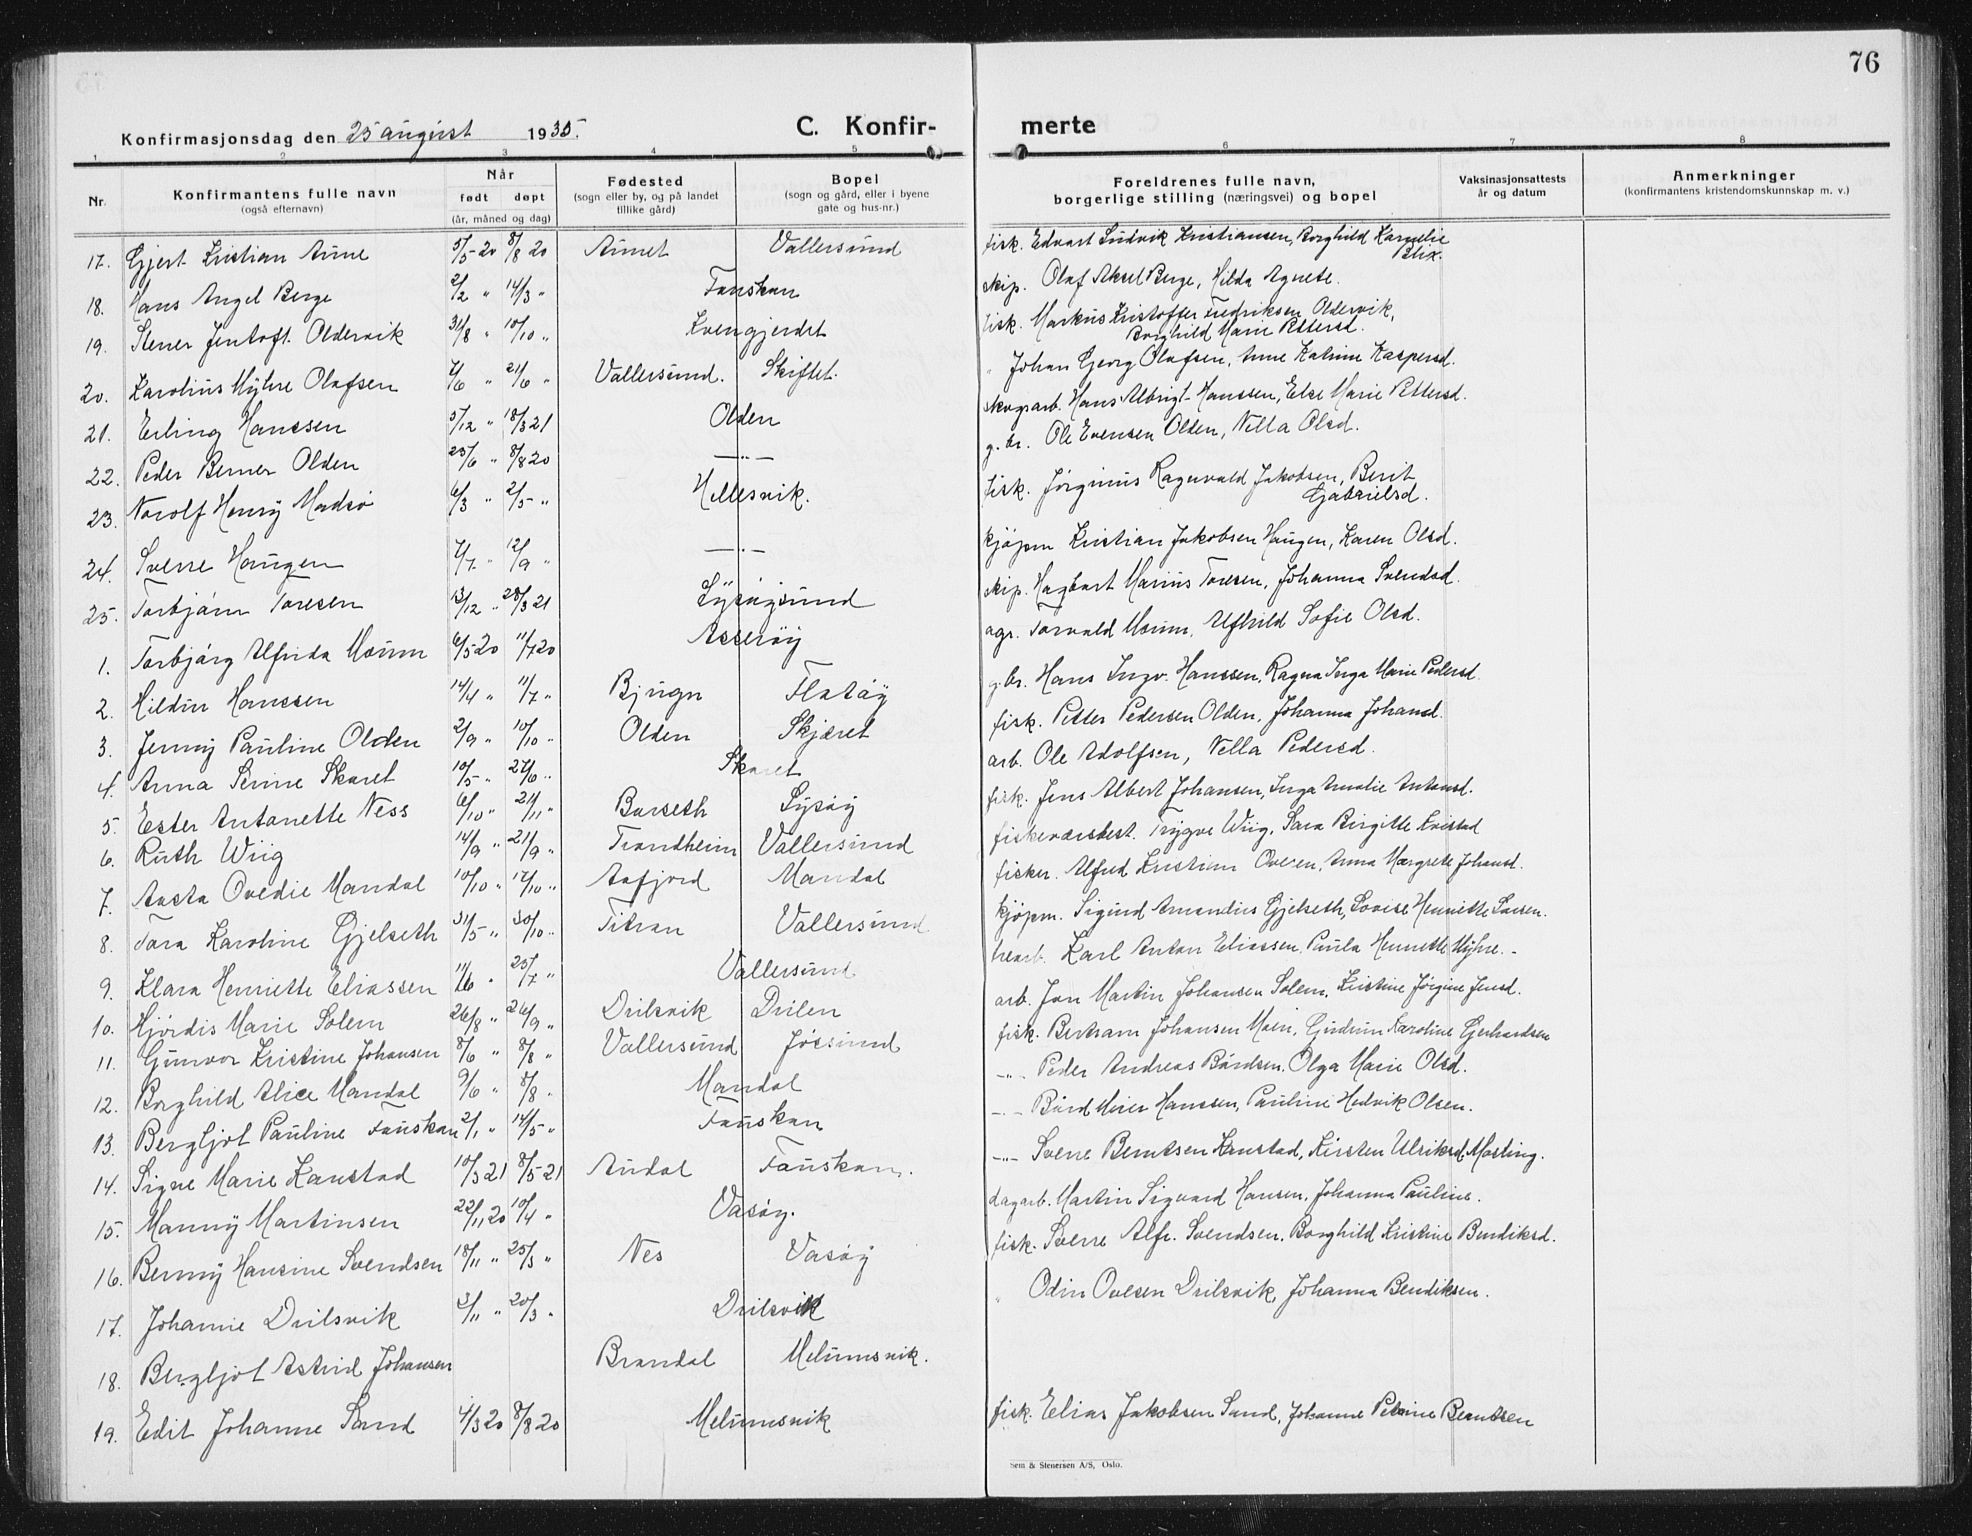 76
Konfirmasjonsdag den 25 august 1935.
C. Konfir-
merte
1 2 3 4 5 6 7 8
Nr.
Konfirmantens fulle navn
(også efternavn)
Når
født døpt
(år, måned og dag)
Fødested
(sogn eller by, og på landet
tillike gård)
Bopel
(sogn og gård, eller i byene
gate og hus-nr.)
Foreldrenes fulle navn,
borgerlige stilling (næringsvei) og bopel
Vaksinasjonsattests
år og datum
Anmerkninger
(konfirmantens kristendomskunnskap m. v.)
17. Gjert Kristian Aune 5/5-20 8/8 20 Aunet Vallersund fisk. Edvart Ludvik Kristiansen, Borghild Kornelie
Blix.
18. Hans Angel Berge 2/2 " 14/3 " Fauskan skip. Olaf Aksel Berge, Hilda Agnete.
19. Stener Jentoft Oldervik 31/8 " 10/10 " Kvengjerdet fisk. Markus Kristoffer Fredriksen Oldervik,
Borghild Marie Pettersd.
20. Karolius Myhre Olafsen 21/6 " Vallersund. Skiftet. " Johan Georg Olafsen, Anne Katrine Kaspersd.
21. Erling Hanssen 5/12 " 18/3 21 Olden skogsarb. Hans Albrigt Hanssen, Else Marie Pettersd.
22. Peder Berner Olden 25/6 " 8/8 20 —"— g.br. Ole Evensen Olden, Nella Olsd.
23. Norolf Henry Madsø 6/3 " 2/5 " Hellesvik. fisk. Jørginus Ragnvald Jakobsen, Berit
Gabrielsd.
24. Sverre Haugen 7/7 " 12/9 " —"— kjøpm Kristian Jakobsen Haugen, Karen Olsd.
25. Torbjørn Toresen 13/12 " 28/3 21 Lysøysund skip. Hagbart Marius Toresen, Johanna Svendsd.
1. Torbjørg Alfrida Moum 6/5 20 11/7 20 Asserøy agr. Torvald Moum, Alfhild Sofie Olsd.
2. Hildur Hanssen 14/4 " 11/7 " Bjugn Flatøy g.br. Hans Ingv. Hanssen, Ragna Inga Marie Pedersd.
3. Jenny Pauline Olden 2/9 " 10/10 " Olden Skjæret fisk. Petter Pedersen Olden, Johanna Johansd.
4. Anna Serine Skaret 10/5 " 27/6 " Skaret arb. Ole Adolfsen, Nella Pedersd.
5. Ester Antonette Ness 6/10 " 21/11 " Barseth Lysøy fisk. Jens Albert Johansen, Inga Amalie Antonsd.
6. Ruth Wiig 14/9 " 21/9 " Trondheim Vallersund fiskeværsbest. Trygve Wiig, Sara Birgitte Kvistad
7. Aasta Ovedie Mandal 10/10 " 17/10 " Aafjord Mandal fisker. Alfred Kristian Ovesen, Anna Margrete Johansd.
8. Tora Karoline Gjelseth 31/5 " 30/10 " Titran Vallersund kjøpm. Sigurd Amandus Gjelseth, Lovise Henriette Larsen.
9. Klara Henriette Eliassen 11/6 " 25/7 " Vallersund Karl Anton Eliassen, Paula Henriette Myhre.
10. Hjørdis Marie Solem 26/8 " 26/9 " Drilsvik Drilen arb. Jon Martin Johansen Solem, Kristine Jørgine Jensd.
11. Gunvor Kristine Johansen 8/6 " 8/8 " Vallersund Jøssund fisk. Bertram Johansen Moen, Gudrun Karoline Gerhardsen
12. Borghild Alice Mandal 9/6 " 8/8 " Mandal —"— Peder Andreas Bårdsen, Olga Marie Olsd.
13. Bergljot Pauline Fauskan 2/1 " 14/5 " Fauskan —"— Bård Meier Hanssen, Pauline Hedvik Olsen.
14. Signe Marie Kanstad 10/3 21 8/5-21 Audal Fauskan. —"— Sverre Berntsen Kanstad, Kirsten Ulriksd Mosling.
15. Manny Martinsen 22/11 20 10/4 " Vasøy. dagarb. Martin Sigvard Hansen, Johanna Pauline.
16. Benny Hansine Svendsen 18/11 " 25/3 " Nes Vasøy fisk. Sverre Alfr. Svendsen, Borghild Kristine Bendiksd.
17. Johanne Drilsvik 3/11 " 20/3 " Drilsvik " Odin Ovesen Drilsvik, Johanna Bendiksen.
18. Bergljot Astrid Johansen Brandal Melumsvik.
19. Edit Johanne Sand 4/3 20 8/8 20 Melumsvik fisk. Elias Jakobsen Sand, Johanne Petrine Berntsen
Sem & Stenersen A/S, Oslo.